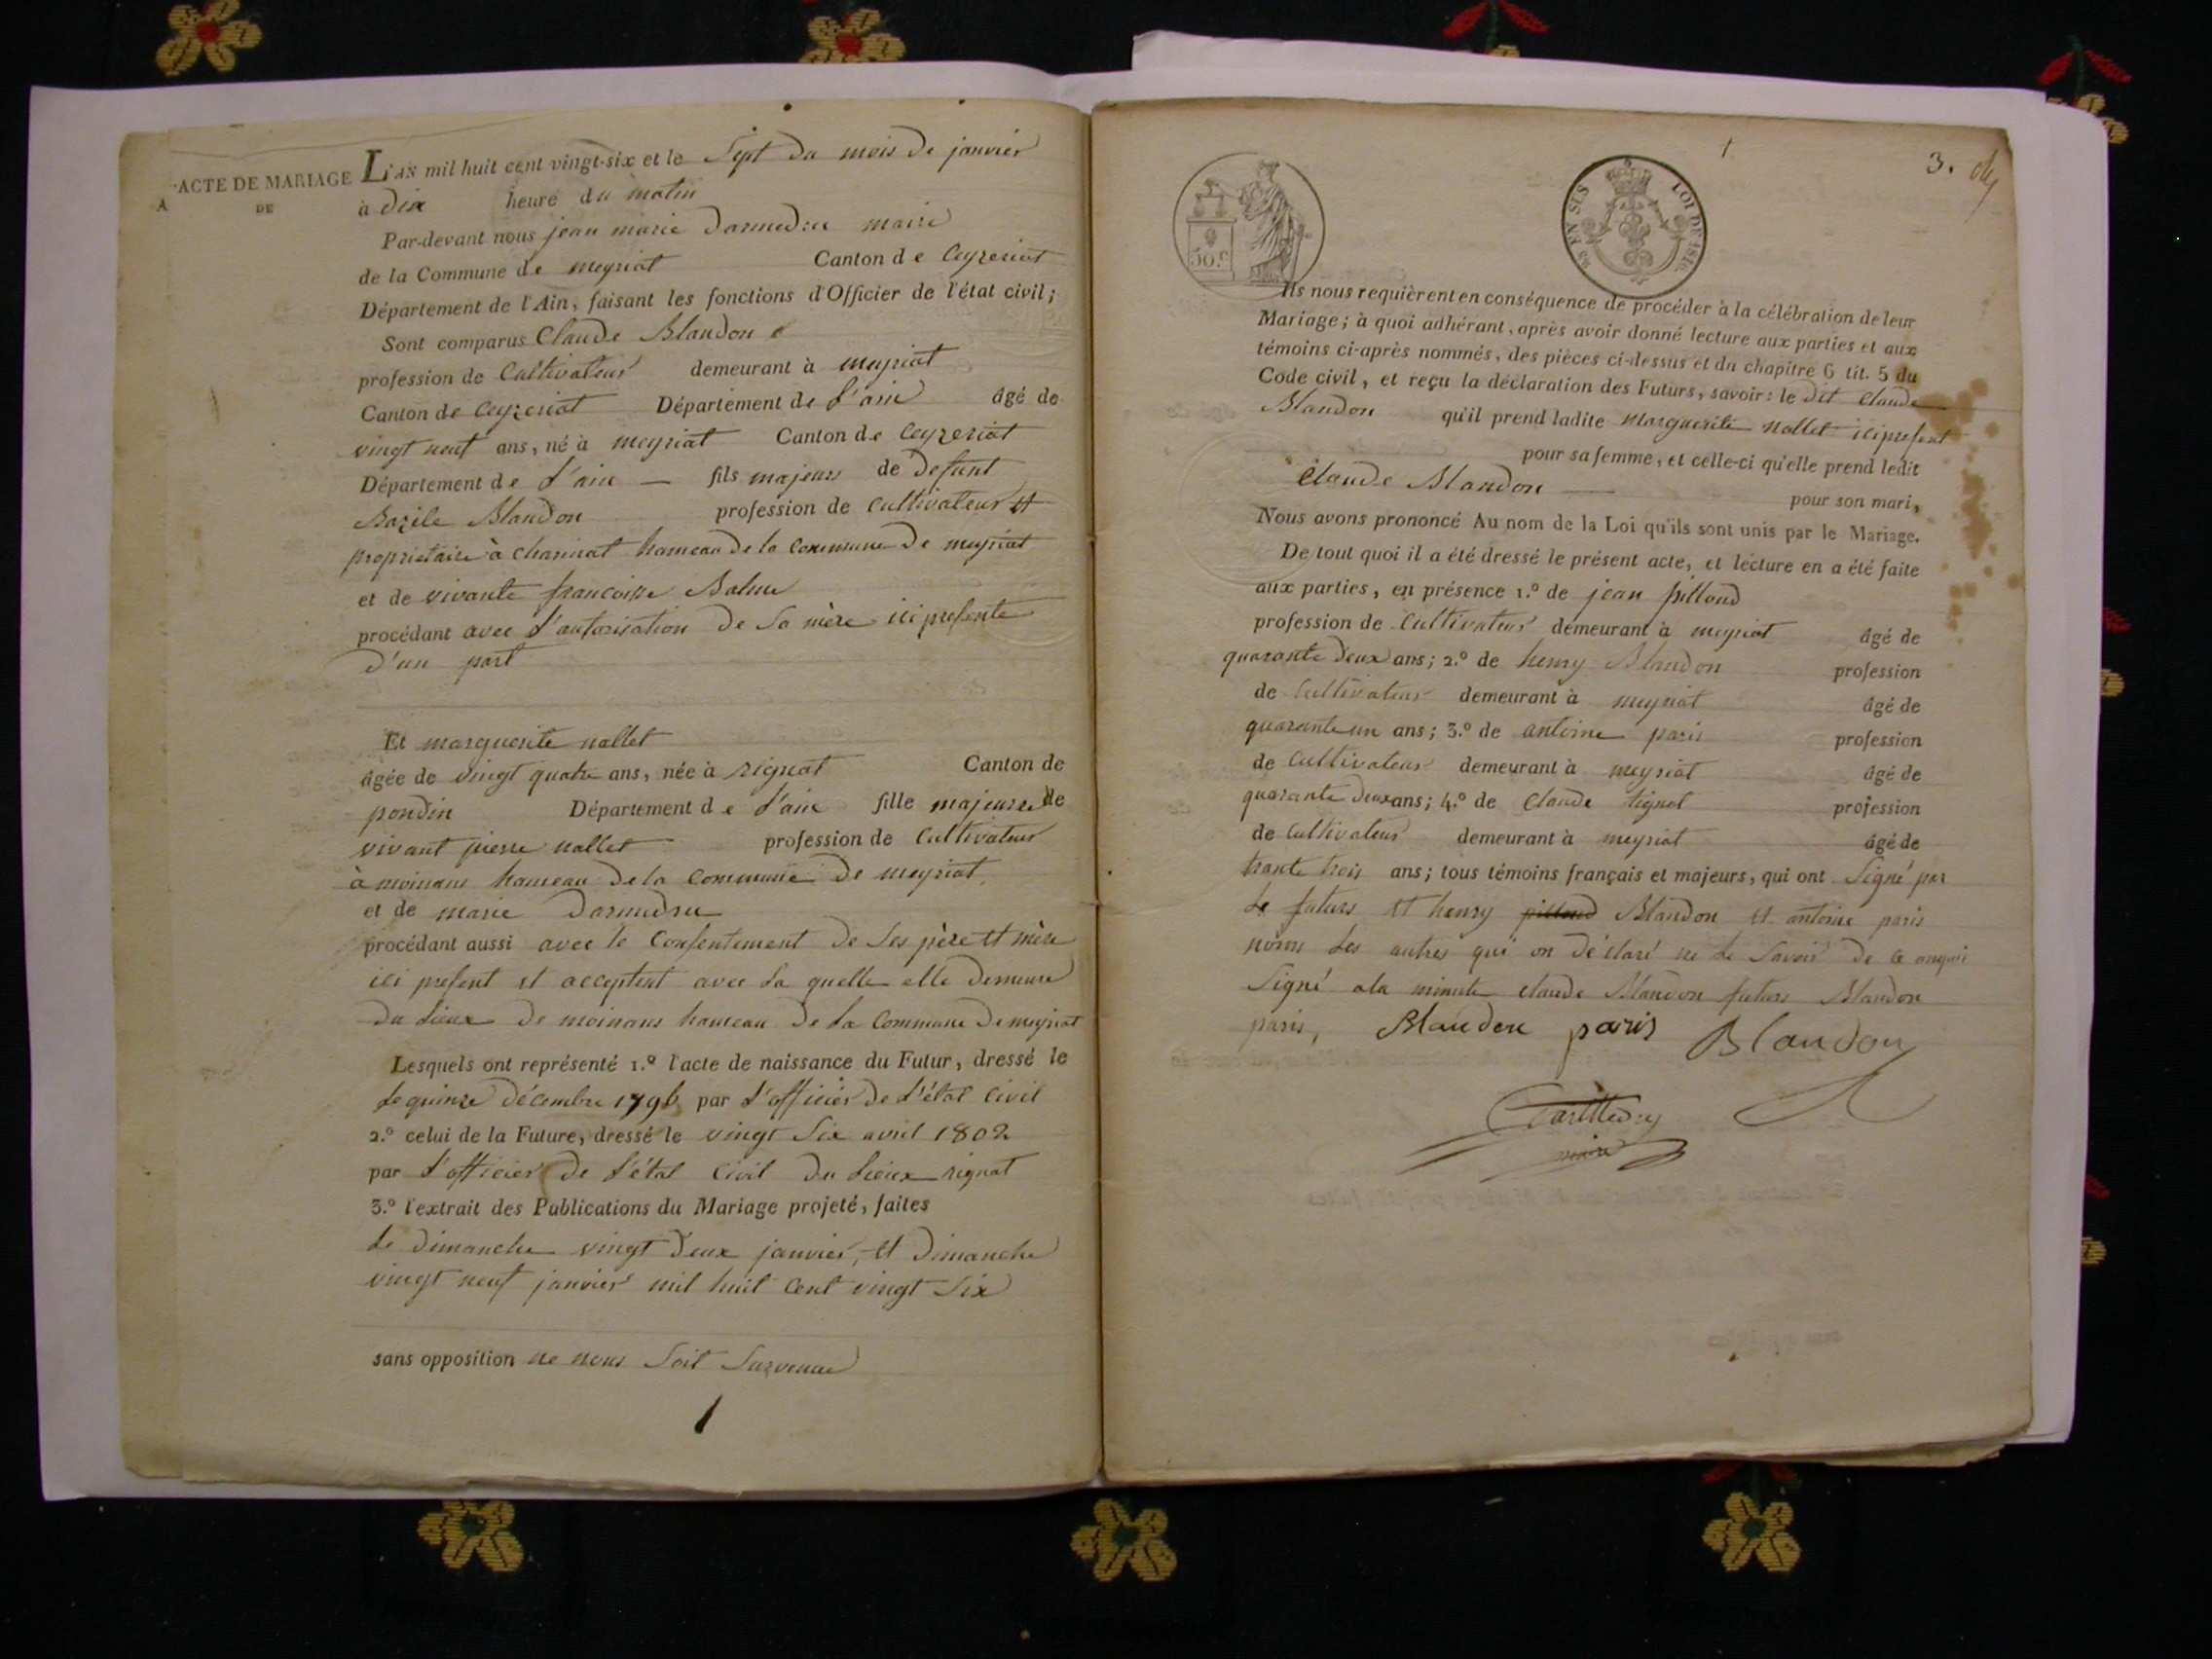 ACTE DE MARIAGE
A DE
L'AN mil huit cent vingt-six et le Sept du mois de janvier
à dix heure du matin
Par-devant nous jean marie darmedru maire
de la Commune de meyriat Canton de Ceyzeriat
Département de l'Ain, faisant les fonctions d'Officier de l'état civil;
Sont comparus Claude Blandon
profession de Cultivateur demeurant à meyriat
Canton de Ceyzeriat Département de L'ain âgé de
vingt neuf ans, né à meyriat Canton de Ceyzeriat
Département de L'ain — fils majeur de defunt
Bazile Blandon profession de Cultivateur et
proprietaire à charinat hameau de la Commune de meyriat
et de vivante francoise Balme
procédant avec L'autorisation de Sa mère ici presente
d'un part
Et marguerite nallet
âgée de vingt quatre ans, née à rignat Canton de
pondin Département de L'ain fille majeure de
vivant pierre nallet profession de Cultivateur
à moinans hameau de la Commune de meyriat
et de marie darmedru
procédant aussi avec le Consentement de Ses père et mère
ici present et acceptent avec La quelle elle demeure
du Lieux de moinans hameau de La Commune de meyriat
Lesquels ont représenté 1.º l'acte de naissance du Futur, dressé le
Le quinze décembre 1796 par L'officier de L'état Civil
2.º celui de la Future, dressé le vingt Six avril 1802
par L'officier de L'état Civil du Lieux rignat
3.º l'extrait des Publications du Mariage projeté, faites
Le dimanche vingt deux janvier, et dimanche
vingt neuf janvier mil huit Cent vingt Six
sans opposition ne nous Soit Survenue
3.
50.c
LOI DE 1816.
Ils nous requièrent en conséquence de procéder à la célébration de leur
Mariage; à quoi adhérant, après avoir donné lecture aux parties et aux
témoins ci-après nommés, des pièces ci-dessus et du chapitre 6 tit. 5 du
Code civil, et reçu la déclaration des Futurs, savoir: le dit Claude
Blandon qu'il prend ladite marguerite nallet ici present
pour sa femme, et celle-ci qu'elle prend ledit
Claude Blandon — pour son mari,
Nous avons prononcé Au nom de la Loi qu'ils sont unis par le Mariage.
De tout quoi il a été dressé le présent acte, et lecture en a été faite
aux parties, en présence 1.º de jean pilloud
profession de Cultivateur demeurant à meyriat âgé de
quarante deux ans; 2.º de henry Blandon profession
de Cultivateur demeurant à meyriat âgé de
quarante un ans; 3.º de antoine paris profession
de Cultivateur demeurant à meyriat âgé de
quarante deux ans; 4.º de Claude tignat profession
de Cultivateur demeurant à meyriat âgé de
trante trois ans; tous témoins français et majeurs, qui ont Signé par
Le futurs et henry pilloud Blandon et antoine paris
nonns Les autres qui on déclaré ne Le Savoir de ce
Signé ala minute claude Blandon futurs Blandon
paris, Blandon paris Blandon
maire